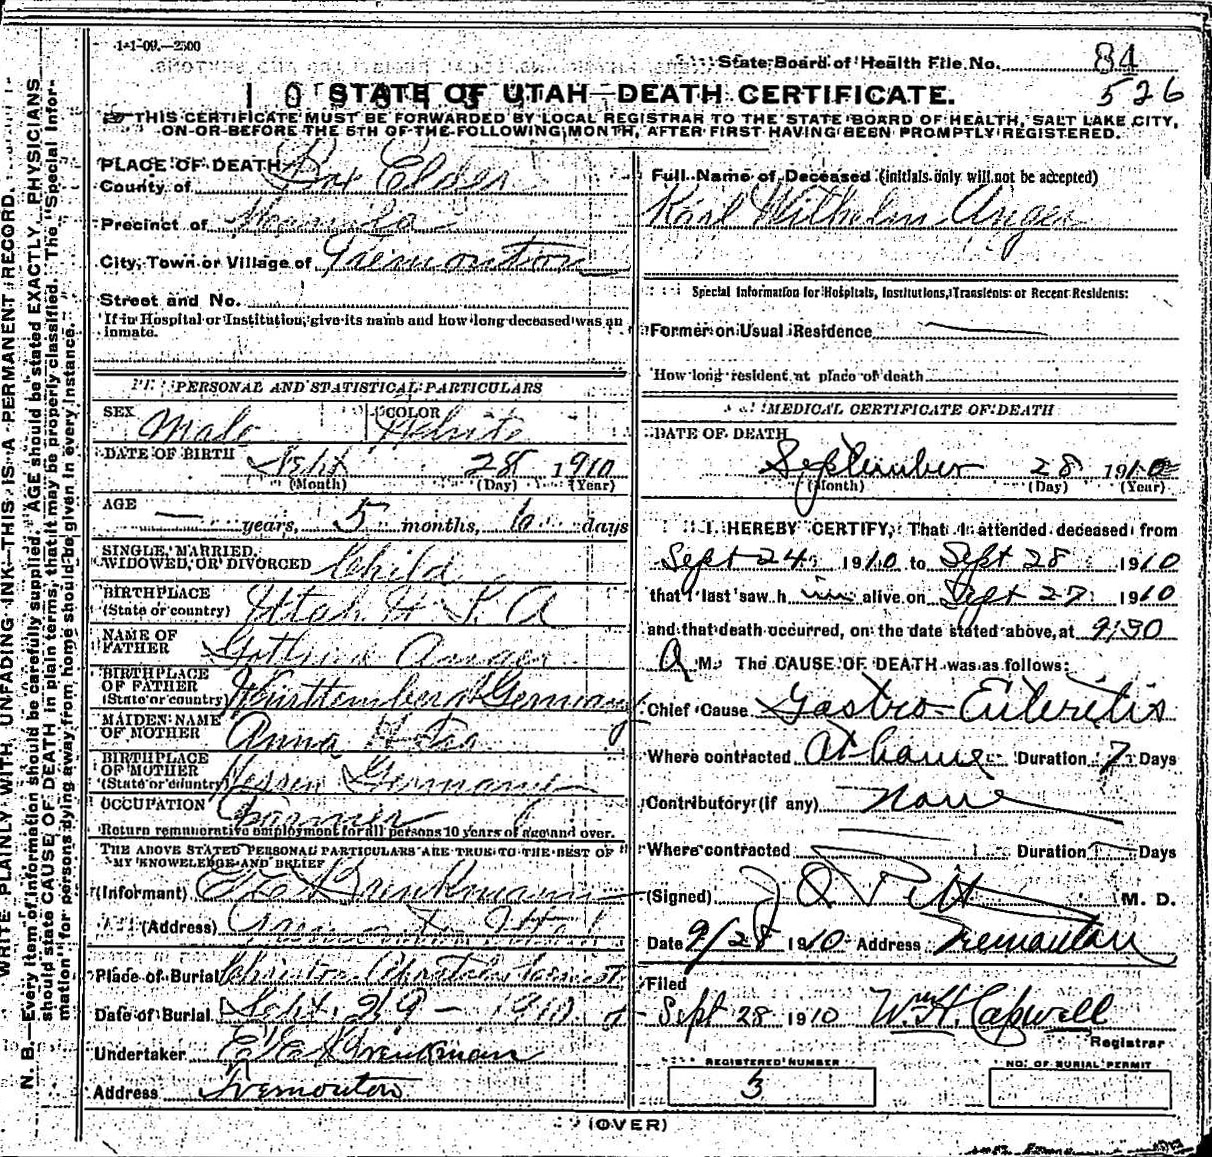 1-1-09.—2500
State Board of Health File No. 84
526
STATE OF UTAH—DEATH CERTIFICATE.
THIS CERTIFICATE MUST BE FORWARDED BY LOCAL REGISTRAR TO THE STATE BOARD OF HEALTH, SALT LAKE CITY,
ON OR BEFORE THE 5TH OF THE FOLLOWING MONTH, AFTER FIRST HAVING BEEN PROMPTLY REGISTERED.
WRITE PLAINLY WITH UNFADING INK—THIS IS A PERMANENT RECORD.
N. B.—Every item of information should be carefully supplied. AGE should be stated EXACTLY. PHYSICIANS
should state CAUSE OF DEATH in plain terms, that it may be properly classified. The "Special Infor-
mation" for persons dying away from home should be given in every instance.
PLACE OF DEATH
County of Box Elder
Precinct of
City, Town or Village of Tremonton
Street and No.
If in Hospital or Institution, give its name and how long deceased was an
inmate.
PERSONAL AND STATISTICAL PARTICULARS
SEX Male COLOR White
DATE OF BIRTH Sept 28 1910
(Month) (Day) (Year)
AGE — years, 5 months, days
SINGLE, MARRIED,
WIDOWED, OR DIVORCED Child
BIRTHPLACE
(State or country) Utah U S A
NAME OF
FATHER
BIRTHPLACE
OF FATHER
(State or country) Württemberg Germany
MAIDEN NAME
OF MOTHER Anna
BIRTHPLACE
OF MOTHER
(State or country) Hessen Germany
OCCUPATION Farmer
Return remunerative employment for all persons 10 years of age and over.
THE ABOVE STATED PERSONAL PARTICULARS ARE TRUE TO THE BEST OF
MY KNOWLEDGE AND BELIEF
(Informant) E. E.
(Address) Utah
Place of Burial
Date of Burial Sept. 29 - 1910
Undertaker E. E.
Address Tremonton
Full Name of Deceased (initials only will not be accepted)
Karl Wilhelm Anger
Special Information for Hospitals, Institutions, Transients or Recent Residents:
Former or Usual Residence
How long resident at place of death
MEDICAL CERTIFICATE OF DEATH
DATE OF DEATH
September 28 1910
(Month) (Day) (Year)
I HEREBY CERTIFY, That I attended deceased from
Sept 24 1910 to Sept 28 1910
that I last saw h im alive on Sept 27 1910
and that death occurred, on the date stated above, at 9:30
A M. The CAUSE OF DEATH was as follows:
Chief Cause Gastro-Enteritis
Where contracted At home Duration 7 Days
Contributory (if any) None
Where contracted Duration Days
(Signed) M. D.
Date 9/28 1910 Address Tremonton
Filed
Sept 28 1910 Wm. H. Capwell
Registrar
REGISTERED NUMBER
3
NO. OF BURIAL PERMIT
(OVER)